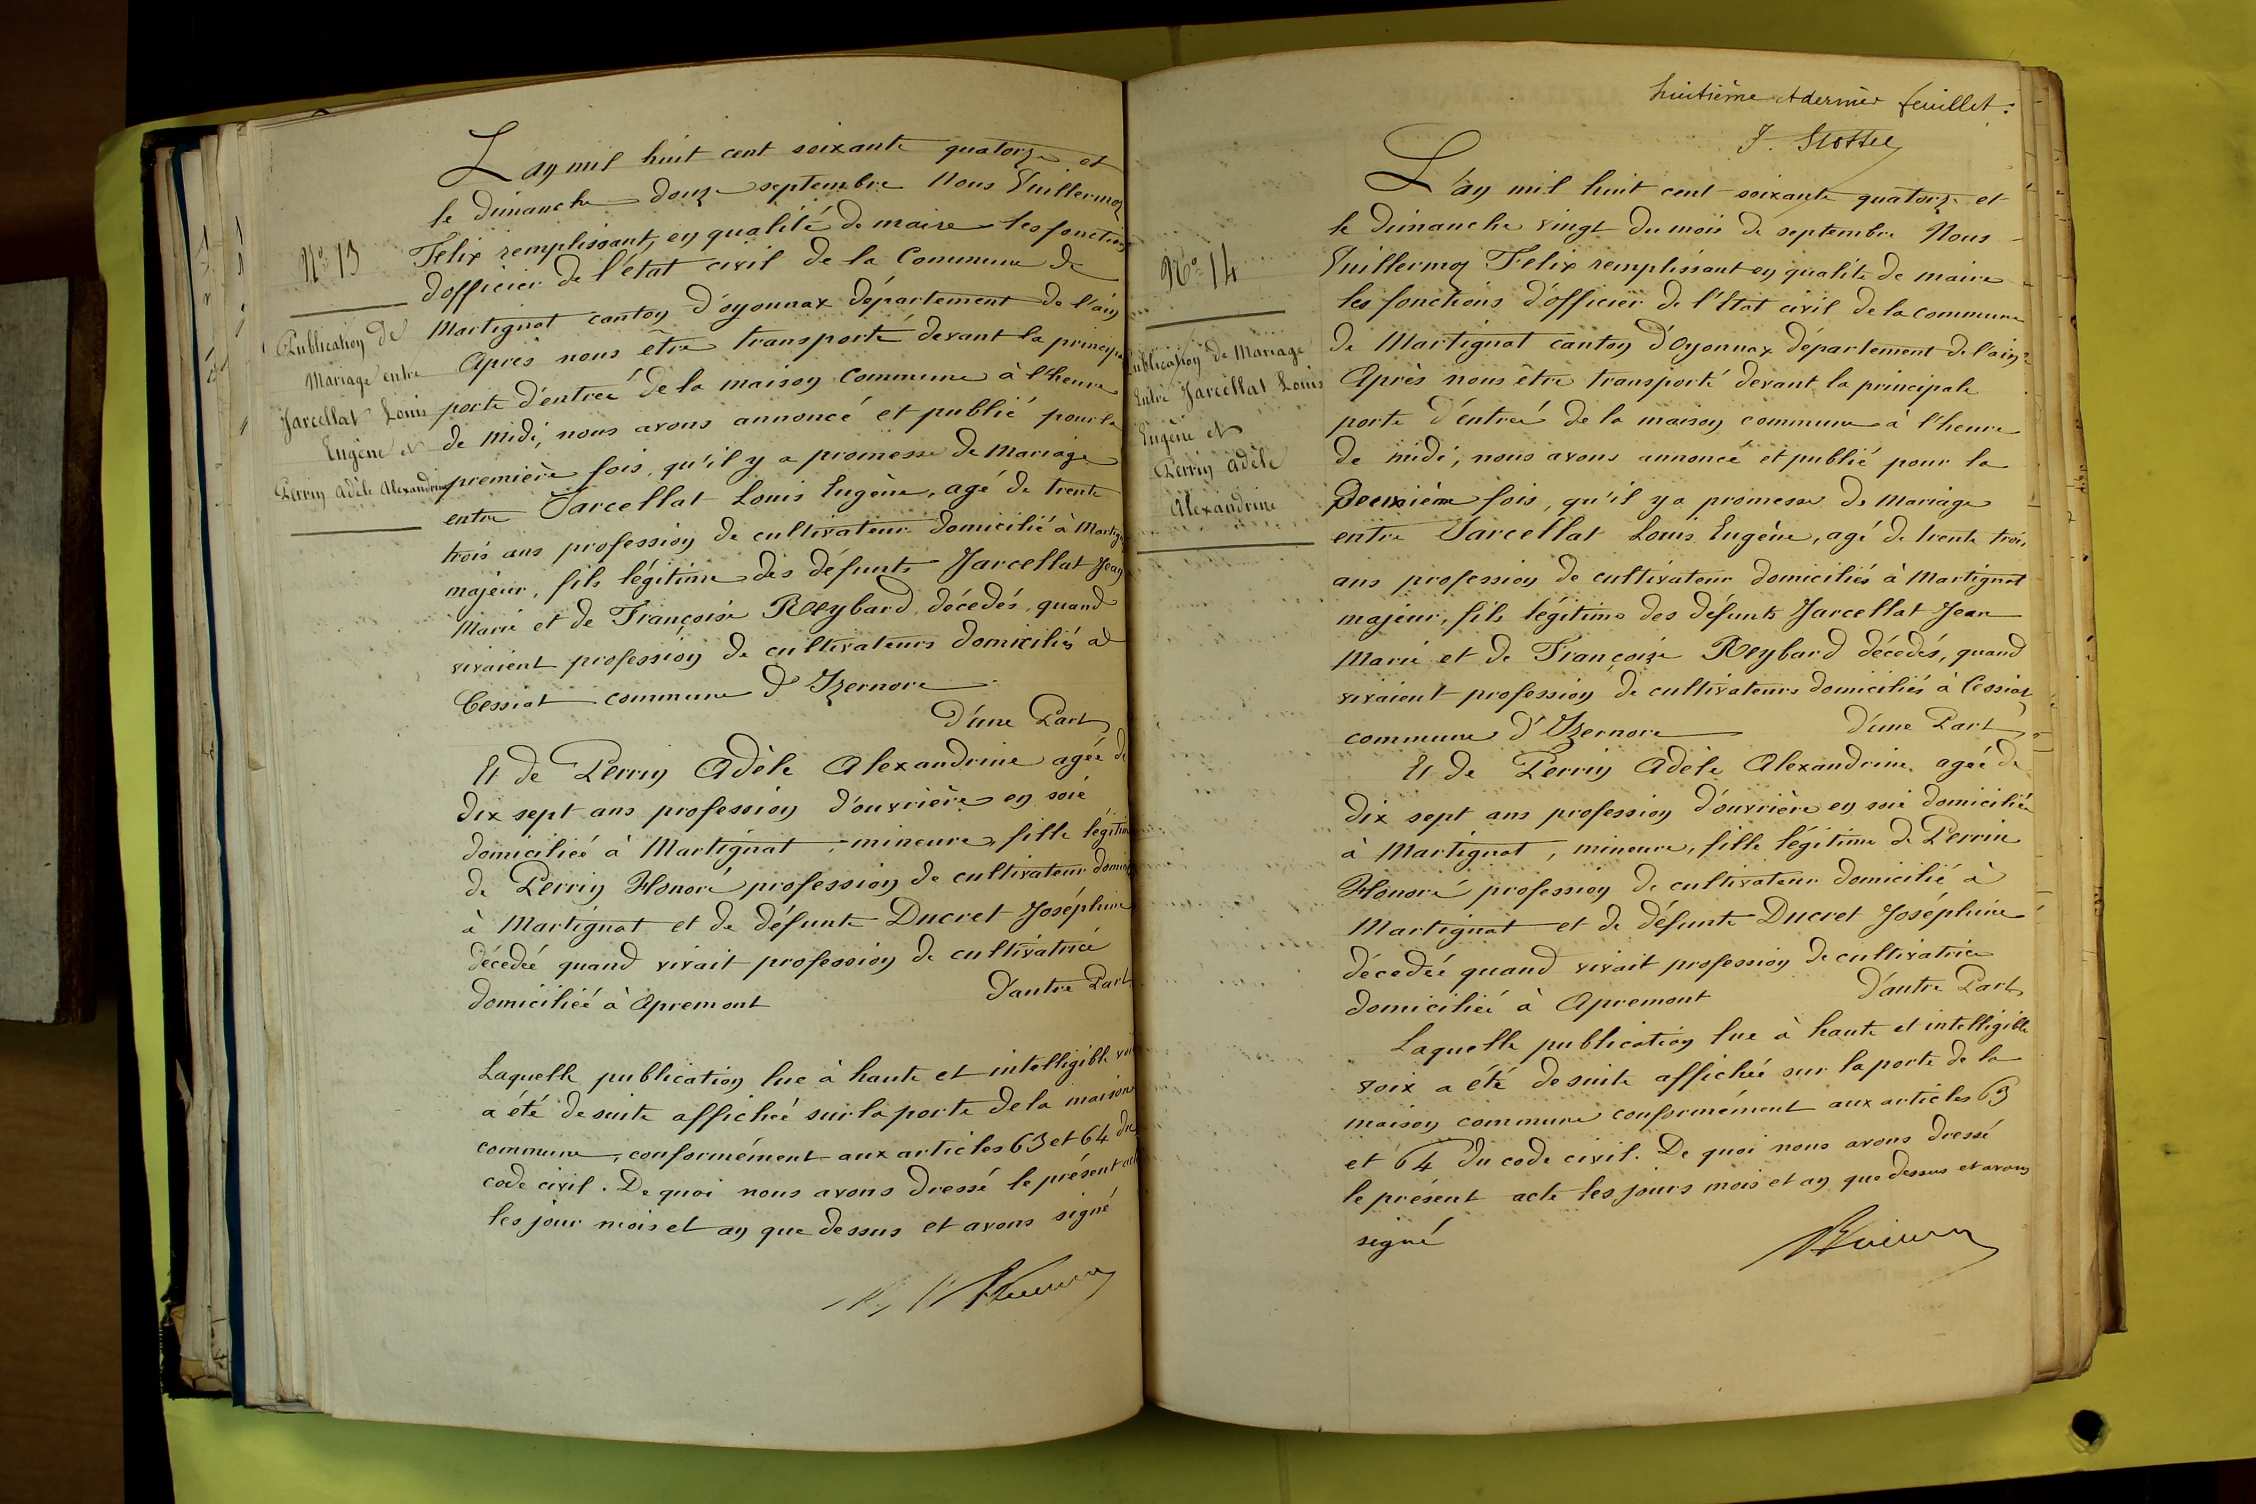 L'an mil huit cent soixante quatorze et
le dimanche douze septembre Nous Vuillermoz
Felix remplissant en qualité de maire les fonctions
d'officier de l'état civil de la Commune de
Martignat canton d'oyonnax département de l'ain
Nº 13
Publication de
Mariage entre
Jarcellat Louis
Eugène et
Perrin Adèle Alexandrine
Après nous être transporté devant la principale
porte d'entrée de la maison commune à l'heure
de midi, nous avons annoncé et publié pour la
première fois, qu'il y a promesse de Mariage
entre Jarcellat Louis Eugène, agé de trente
trois ans profession de cultivateur domicilié à Martignat
majeur, fils légitime des défunts Jarcellat Jean
Marie et de Françoise Reybard décédés, quand
vivaient profession de cultivateurs domiciliés à
Cessiat commune d'Izernore
D'une Part
Et de Perrin Adèle Alexandrine agée de
dix sept ans profession d'ouvrière en soie
domiciliée à Martignat, mineure, fille légitime
de Perrin Honoré profession de cultivateur domicilié
à Martignat et de défunte Ducret Joséphine
décédée quand vivait profession de cultivatrice
domiciliée à Apremont D'autre Part
Laquelle publication lue à haute et intelligible voix
a été de suite affichée sur la porte de la maison
commune, conformément aux articles 63 et 64 du
code civil. De quoi nous avons dressé le présent acte
les jour mois et an que dessus et avons signé
huitième et dernier feuillet:
L'an mil huit cent soixante quatorze et
le dimanche vingt du mois de septembre Nous
Vuillermoz Felix remplissant en qualité de maire
les fonctions d'officier de l'Etat civil de la commune
de Martignat canton d'Oyonnax département de l'ain
Nº 14
Publication de Mariage
Entre Jarcellat Louis
Eugène et
Perrin Adèle
Alexandrine
Après nous être transporté devant la principale
porte d'entrée de la maison commune à l'heure
de midi, nous avons annoncé et publié pour la
Deuxième fois, qu'il y a promesse de Mariage
entre Jarcellat Louis Eugène, agé de trente trois
ans profession de cultivateur domiciliés à Martignat
majeur, fils légitime des défunts Jarcellat Jean
Marie et de Françoise Reybard décédés, quand
vivaient profession de cultivateurs domiciliés à Cessiat
commune d'Izernore D'une Part
Et de Perrin Adèle Alexandrine agée de
dix sept ans profession d'ouvrière en soie domiciliée
à Martignat, mineure, fille légitime de Perrin
Honoré profession de cultivateur domicilié à
Martignat et de défunte Ducret Joséphine
décédée quand vivait profession de cultivatrice
domiciliée à Apremont D'autre Part
Laquelle publication lue à haute et intelligible
voix a été de suite affichée sur la porte de la
maison commune conformément aux articles 63
et 64 du code civil. De quoi nous avons dressé
le présent acte les jours mois et an que dessus et avons
signé